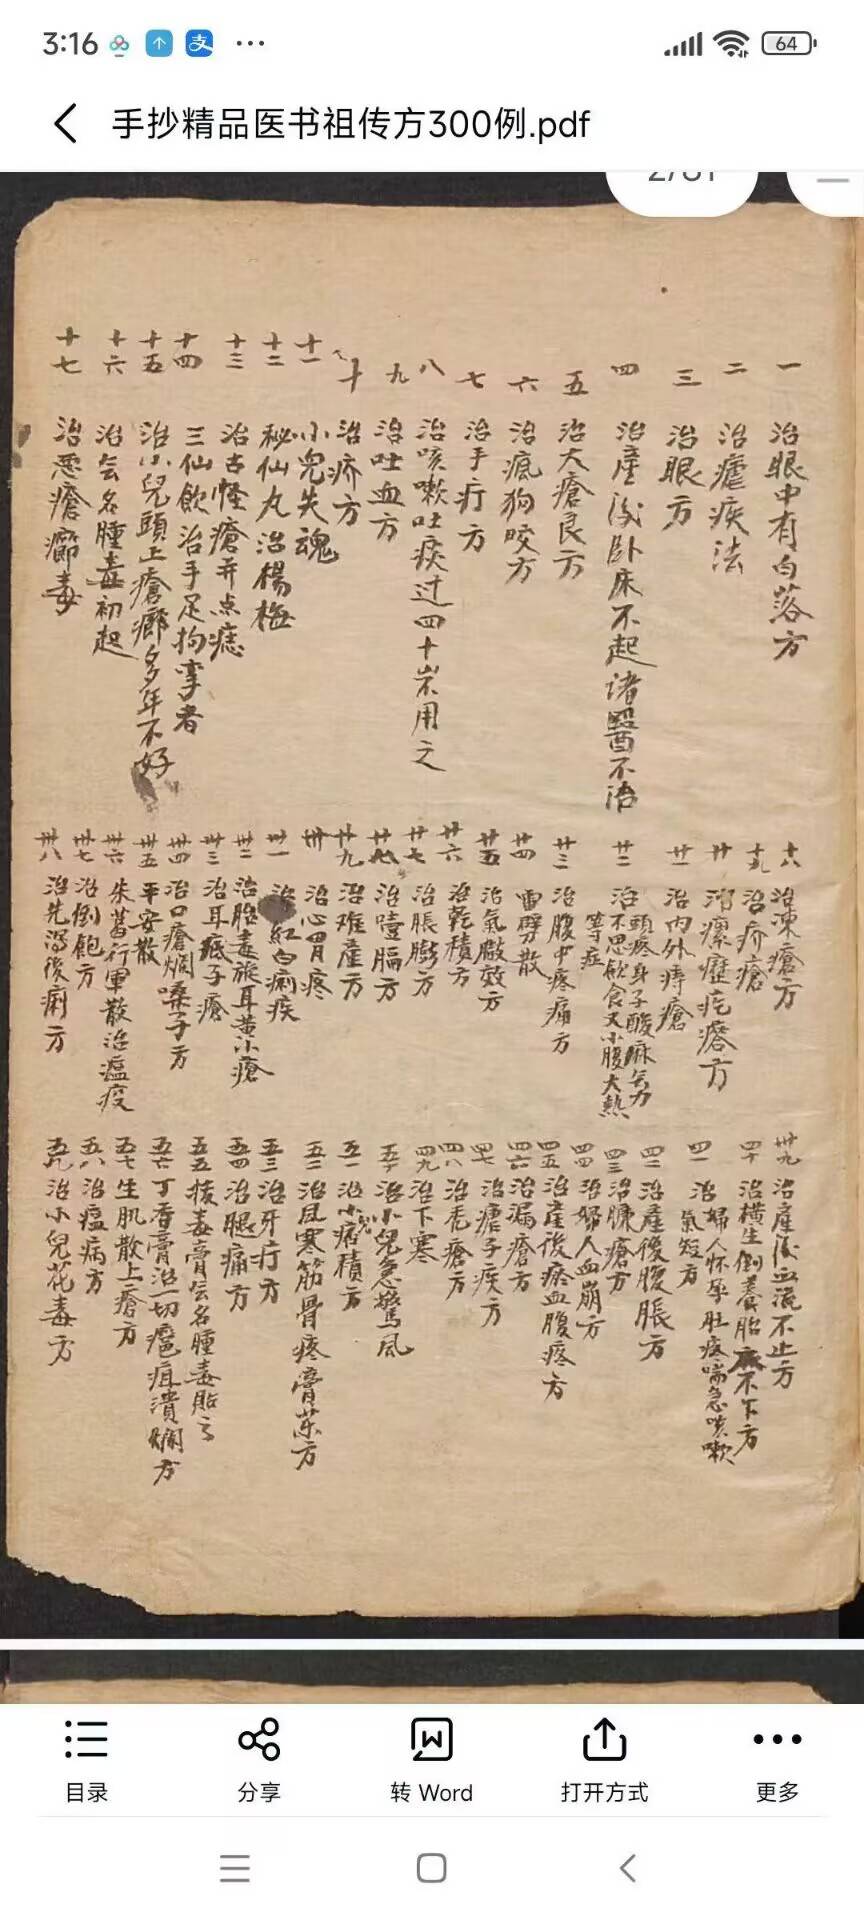 3:16
64
手抄精品医书祖传方300例.pdf
一 治眼中有白落方
二 治瘧疾法
三 治眼方
四 治產後卧床不起诸醫不治
五 治大瘡良方
六 治瘋狗咬方
七 治手疔方
八 治咳嗽吐痰过四十岁用之
九 治吐血方
十 治疥方
十一 小兒失魂
十二 秘仙丸治楊梅
十三 治古怪瘡并点痣
十四 三仙飲治手足拘挛者
十五 治小兒頭上瘡癤多年不好
十六 治無名腫毒初起
十七 治恶瘡癤毒
十八 治凍瘡方
十九 治疥瘡
廿 治瘰癧疙瘩方
廿一 治内外痔瘡
廿二 治頭疼身子酸麻無力不思飲食又小腹大熱等症
廿三 治腹中疼痛方
廿四 雷劈散
廿五 治氣臌效方
廿六 治乾積方
廿七 治脹膨方
廿八 治噎膈方
廿九 治难產方
卅 治心胃疼
卅一 治紅白痢疾
卅二 治胎毒旋耳黄水瘡
卅三 治耳底子瘡
卅四 治口瘡爛嗓子方
卅五 平安散
卅六 朱葛行軍散治瘟疫
卅七 治倒飽方
卅八 治先瀉後痢方
卅九 治產後血流不止方
四十 治横生倒養胎衣不下方
四一 治婦人怀孕肚疼喘急咳嗽氣短方
四二 治產後腹脹方
四三 治臁瘡方
四四 治婦人血崩方
四五 治產後瘀血腹疼方
四六 治漏瘡方
四七 治瘧子疾方
四八 治秃瘡方
四九 治下寒
五十 治小兒急驚風
五一 治小兒痞積方
五二 治風寒筋骨疼膏药方
五三 治牙疔方
五四 治腿痛方
五五 拔毒膏無名腫毒貼方
五六 丁香膏治一切瘡疽潰爛方
五七 生肌散上瘡方
五八 治瘟病方
五九 治小兒花毒方
目录
分享
转 Word
打开方式
更多